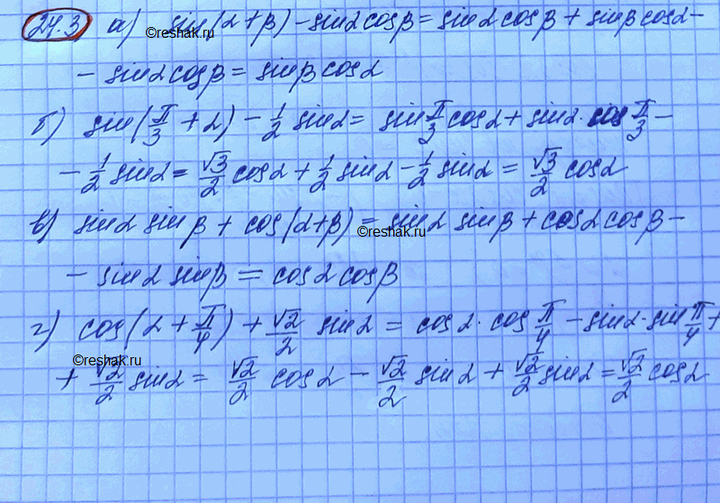 24.3 а) sin(α+β) - sinα cosβ = sinα cosβ + sinβ cosα -
©reshak.ru
- sinα cosβ = sinβ cosα
б) sin(π/3 + α) - 1/2 sinα = sin π/3 cosα + sinα · cos π/3 -
- 1/2 sinα = √3/2 cosα + 1/2 sinα - 1/2 sinα = √3/2 cosα
в) sinα sinβ + cos(α+β) = sinα sinβ + cosα cosβ -
©reshak.ru
- sinα sinβ = cosα cosβ
г) cos(α + π/4) + √2/2 sinα = cosα · cos π/4 - sinα · sin π/4 +
©reshak.ru
+ √2/2 sinα = √2/2 cosα - √2/2 sinα + √2/2 sinα = √2/2 cosα